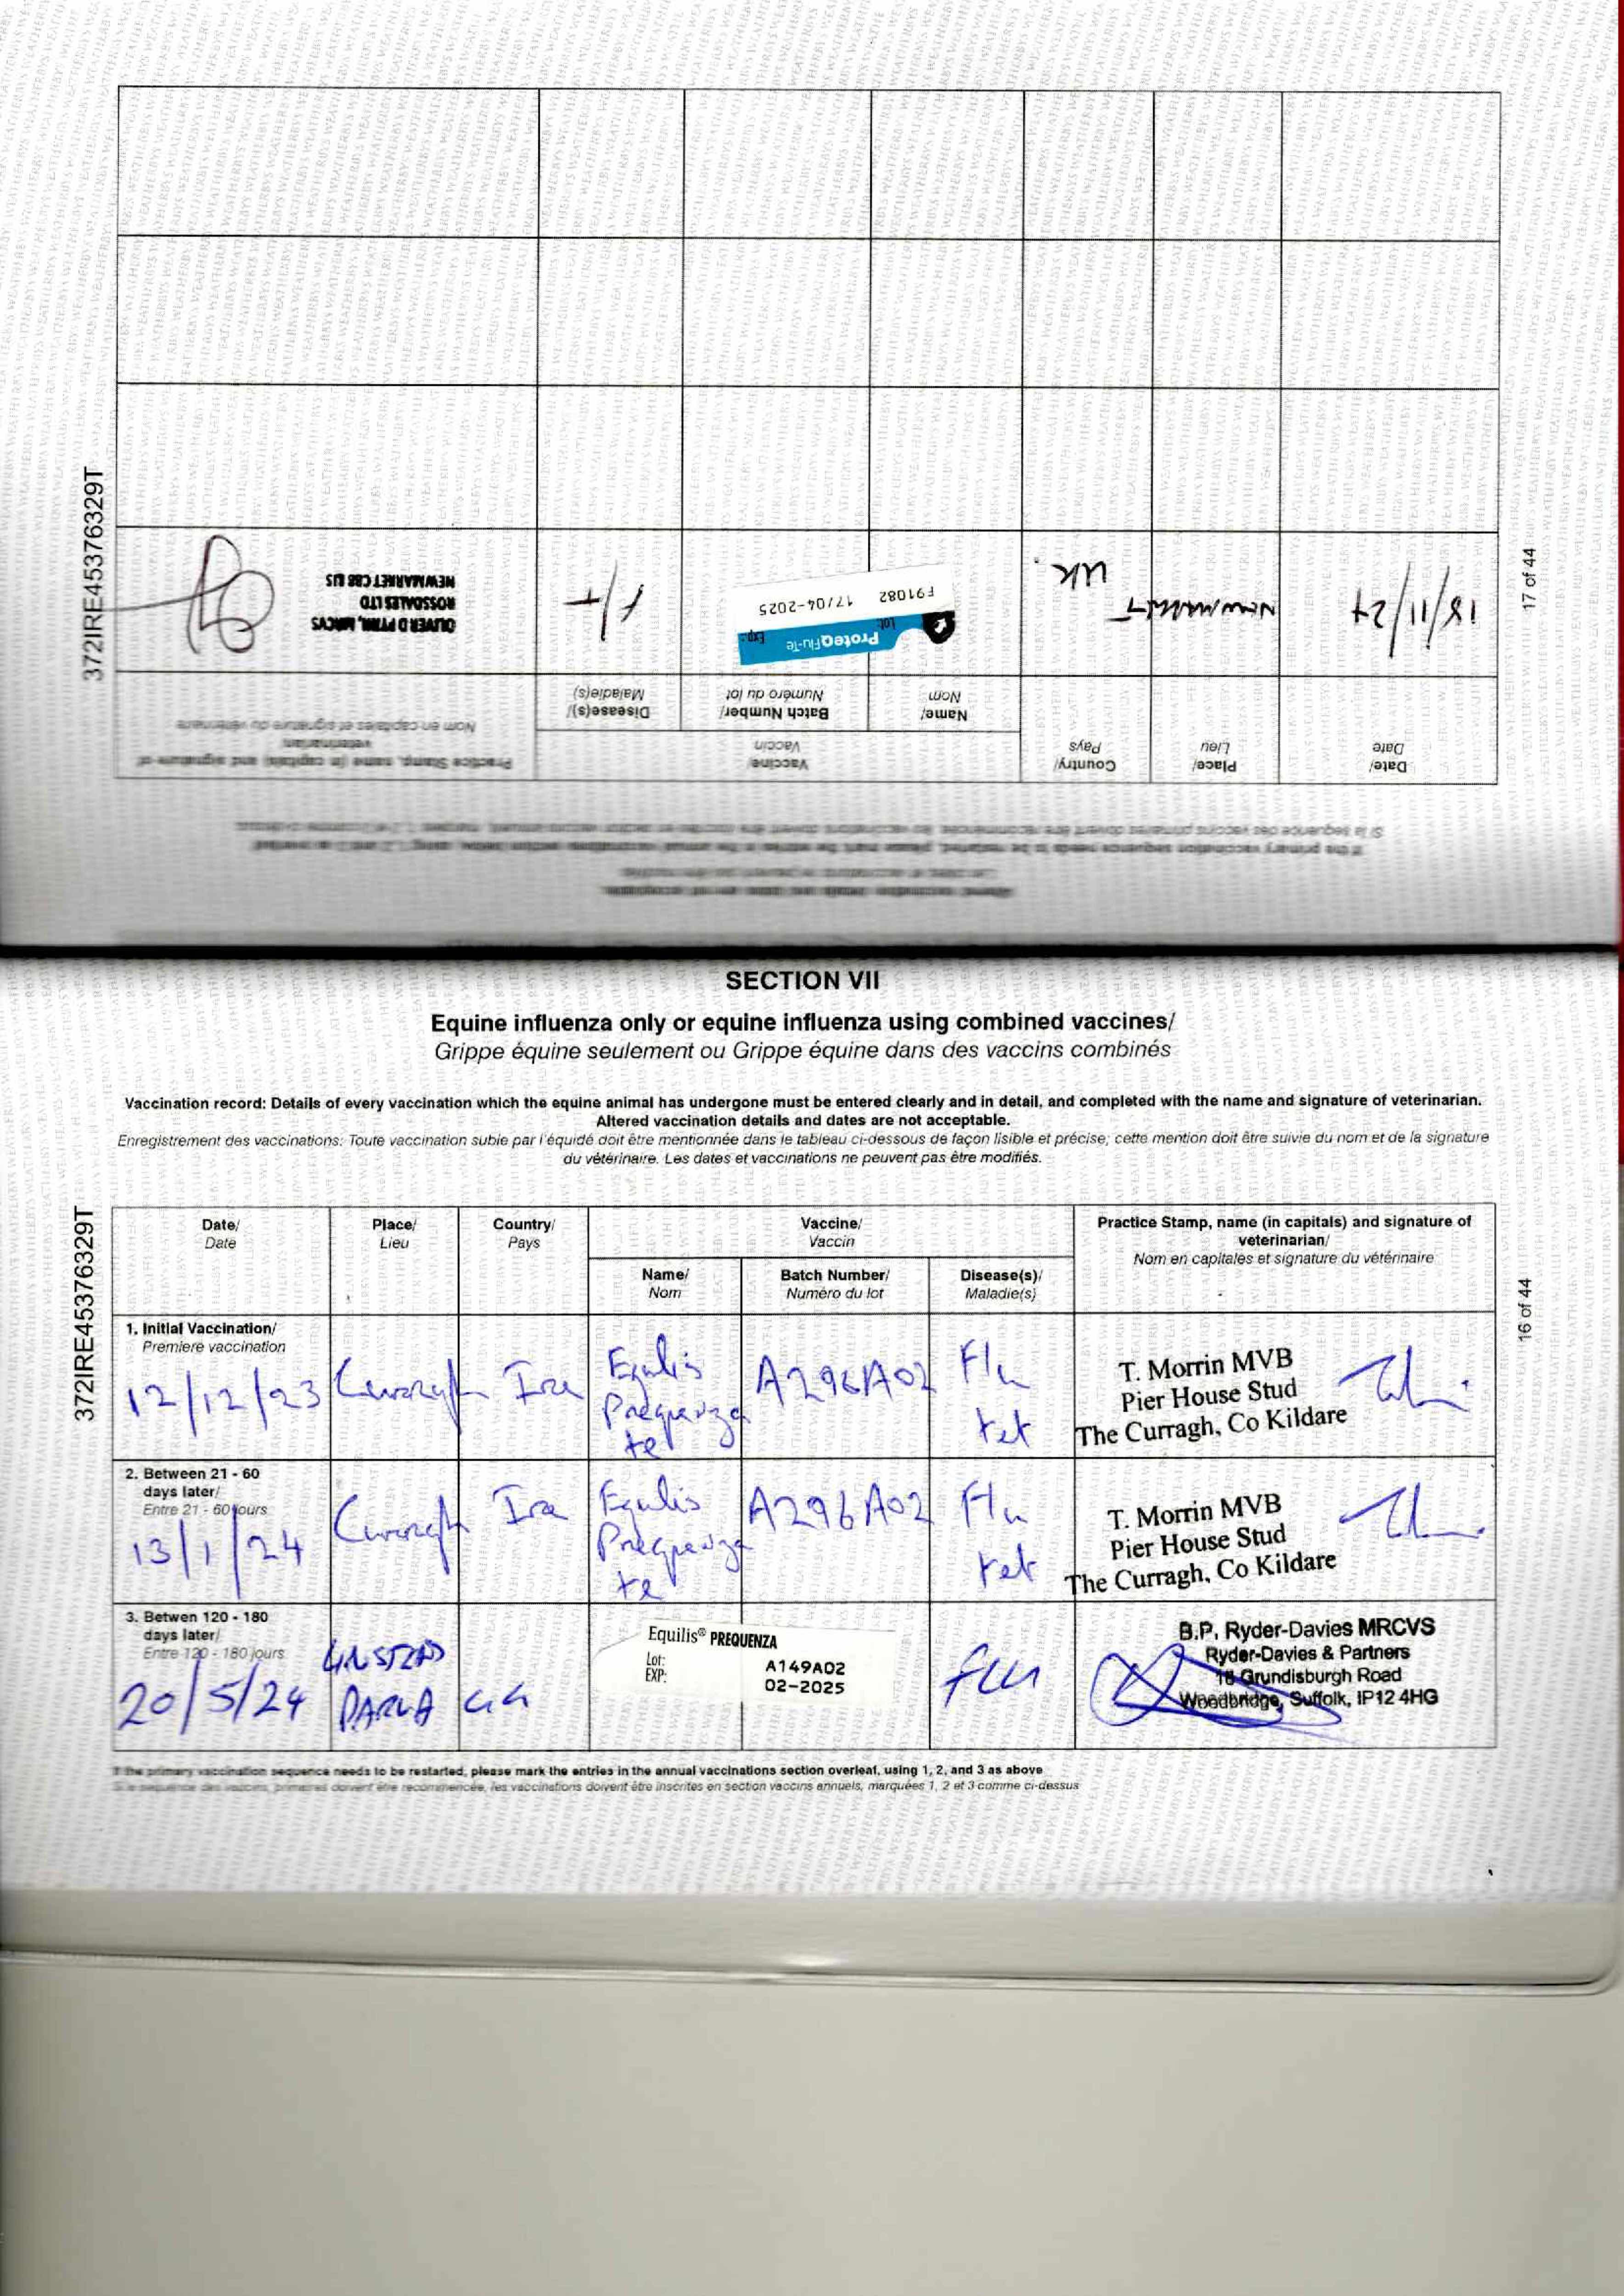 SECTION VII
Equine influenza only or equine influenza using combined vaccines/
Grippe équine seulement ou Grippe équine dans des vaccins combinés
Vaccination record: Details of every vaccination which the equine animal has undergone must be entered clearly and in detail, and completed with the name and signature of veterinarian.
Altered vaccination details and dates are not acceptable.
Enregistrement des vaccinations: Toute vaccination subie par l'équidé doit être mentionnée dans le tableau ci-dessous de façon lisible et précise; cette mention doit être suivie du nom et de la signature
du vétérinaire. Les dates et vaccinations ne peuvent pas être modifiés.
372IRE45376329T
16 of 44
Date/
Date
Place/
Lieu
Country/
Pays
Vaccine/
Vaccin
Name/
Nom
Batch Number/
Numéro du lot
Disease(s)/
Maladie(s)
Practice Stamp, name (in capitals) and signature of
veterinarian/
Nom en capitales et signature du vétérinaire
1. Initial Vaccination/
Premiere vaccination
12/12/23
Curragh
Ire
Equilis
Prequenza
te
A296A02
Flu
tet
T. Morrin MVB
Pier House Stud
The Curragh, Co Kildare
2. Between 21 - 60
days later/
Entre 21 - 60 jours
13/1/24
Curragh
Ire
Equilis
Prequenza
te
A296A02
Flu
tet
T. Morrin MVB
Pier House Stud
The Curragh, Co Kildare
3. Betwen 120 - 180
days later/
Entre 120 - 180 jours
20/5/24
PARVA
Equilis® PREQUENZA
Lot: A149A02
EXP: 02-2025
flu
B.P. Ryder-Davies MRCVS
Ryder-Davies & Partners
16 Grundisburgh Road
Woodbridge, Suffolk, IP12 4HG
If the primary vaccination sequence needs to be restarted, please mark the entries in the annual vaccinations section overleaf, using 1, 2, and 3 as above
Si la séquence des vaccins primaires doivent être recommencée, les vaccinations doivent être inscrites en section vaccins annuels, marquées 1, 2 et 3 comme ci-dessus
372IRE45376329T
17 of 44
Date/
Date
Place/
Lieu
Country/
Pays
Vaccine
Vaccin
Name/
Nom
Batch Number/
Numéro du lot
Disease(s)/
Maladie(s)
Practice Stamp, name (in capitals) and signature of
veterinarian
Nom en capitales et signature du vétérinaire
18/11/24
NEWMARKET
UK.
ProteqFlu-Te
Lot: Exp:
F91082 17/04-2025
F/T
OLIVER D PYNN, MRCVS
ROSSDALES LTD
NEWMARKET CB8